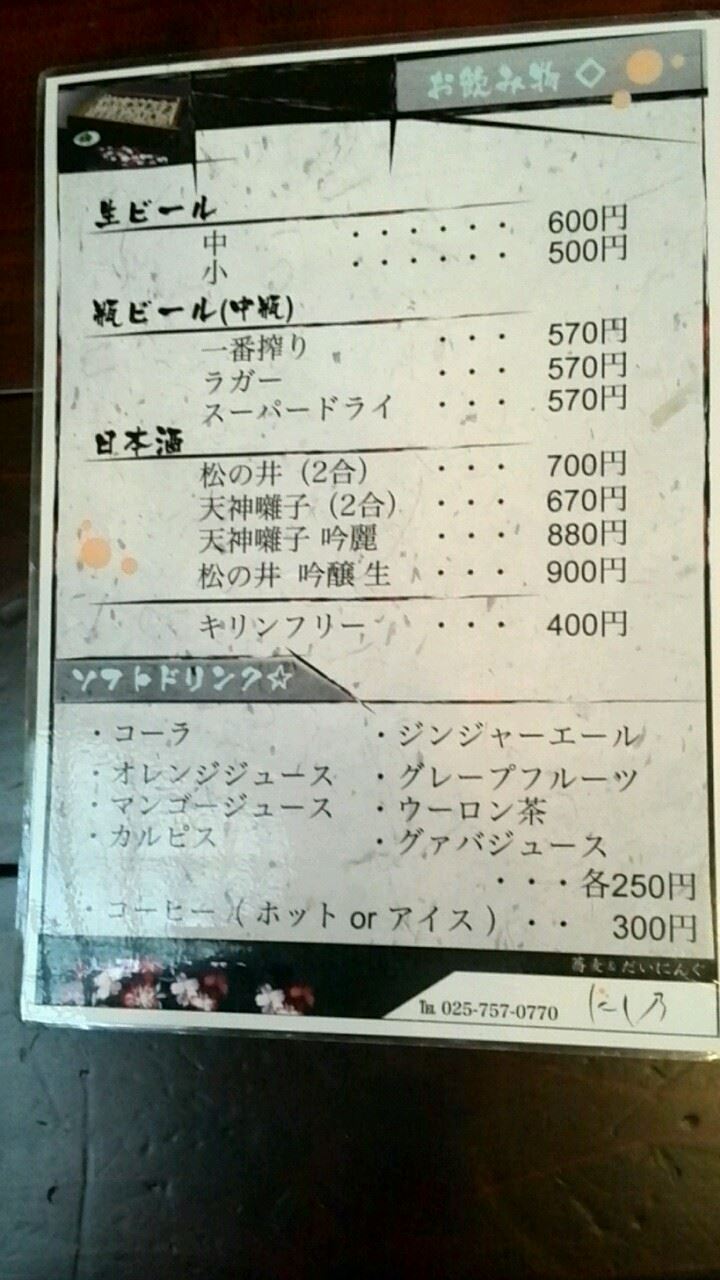 お飲み物 ◇
生ビール
中 ・・・・・・ 600円
小 ・・・・・・ 500円
瓶ビール(中瓶)
一番搾り ・・・ 570円
ラガー ・・・ 570円
スーパードライ ・・・ 570円
日本酒
松の井（2合） ・・・ 700円
天神囃子（2合） ・・・ 670円
天神囃子 吟麗 ・・・ 880円
松の井 吟醸 生 ・・・ 900円
キリンフリー ・・・ 400円
ソフトドリンク☆
・コーラ ・ジンジャーエール
・オレンジジュース ・グレープフルーツ
・マンゴージュース ・ウーロン茶
・カルピス ・グァバジュース
・・・各250円
・コーヒー（ホット or アイス）・・ 300円
蕎麦&だいにんぐ
℡ 025-757-0770 にし乃